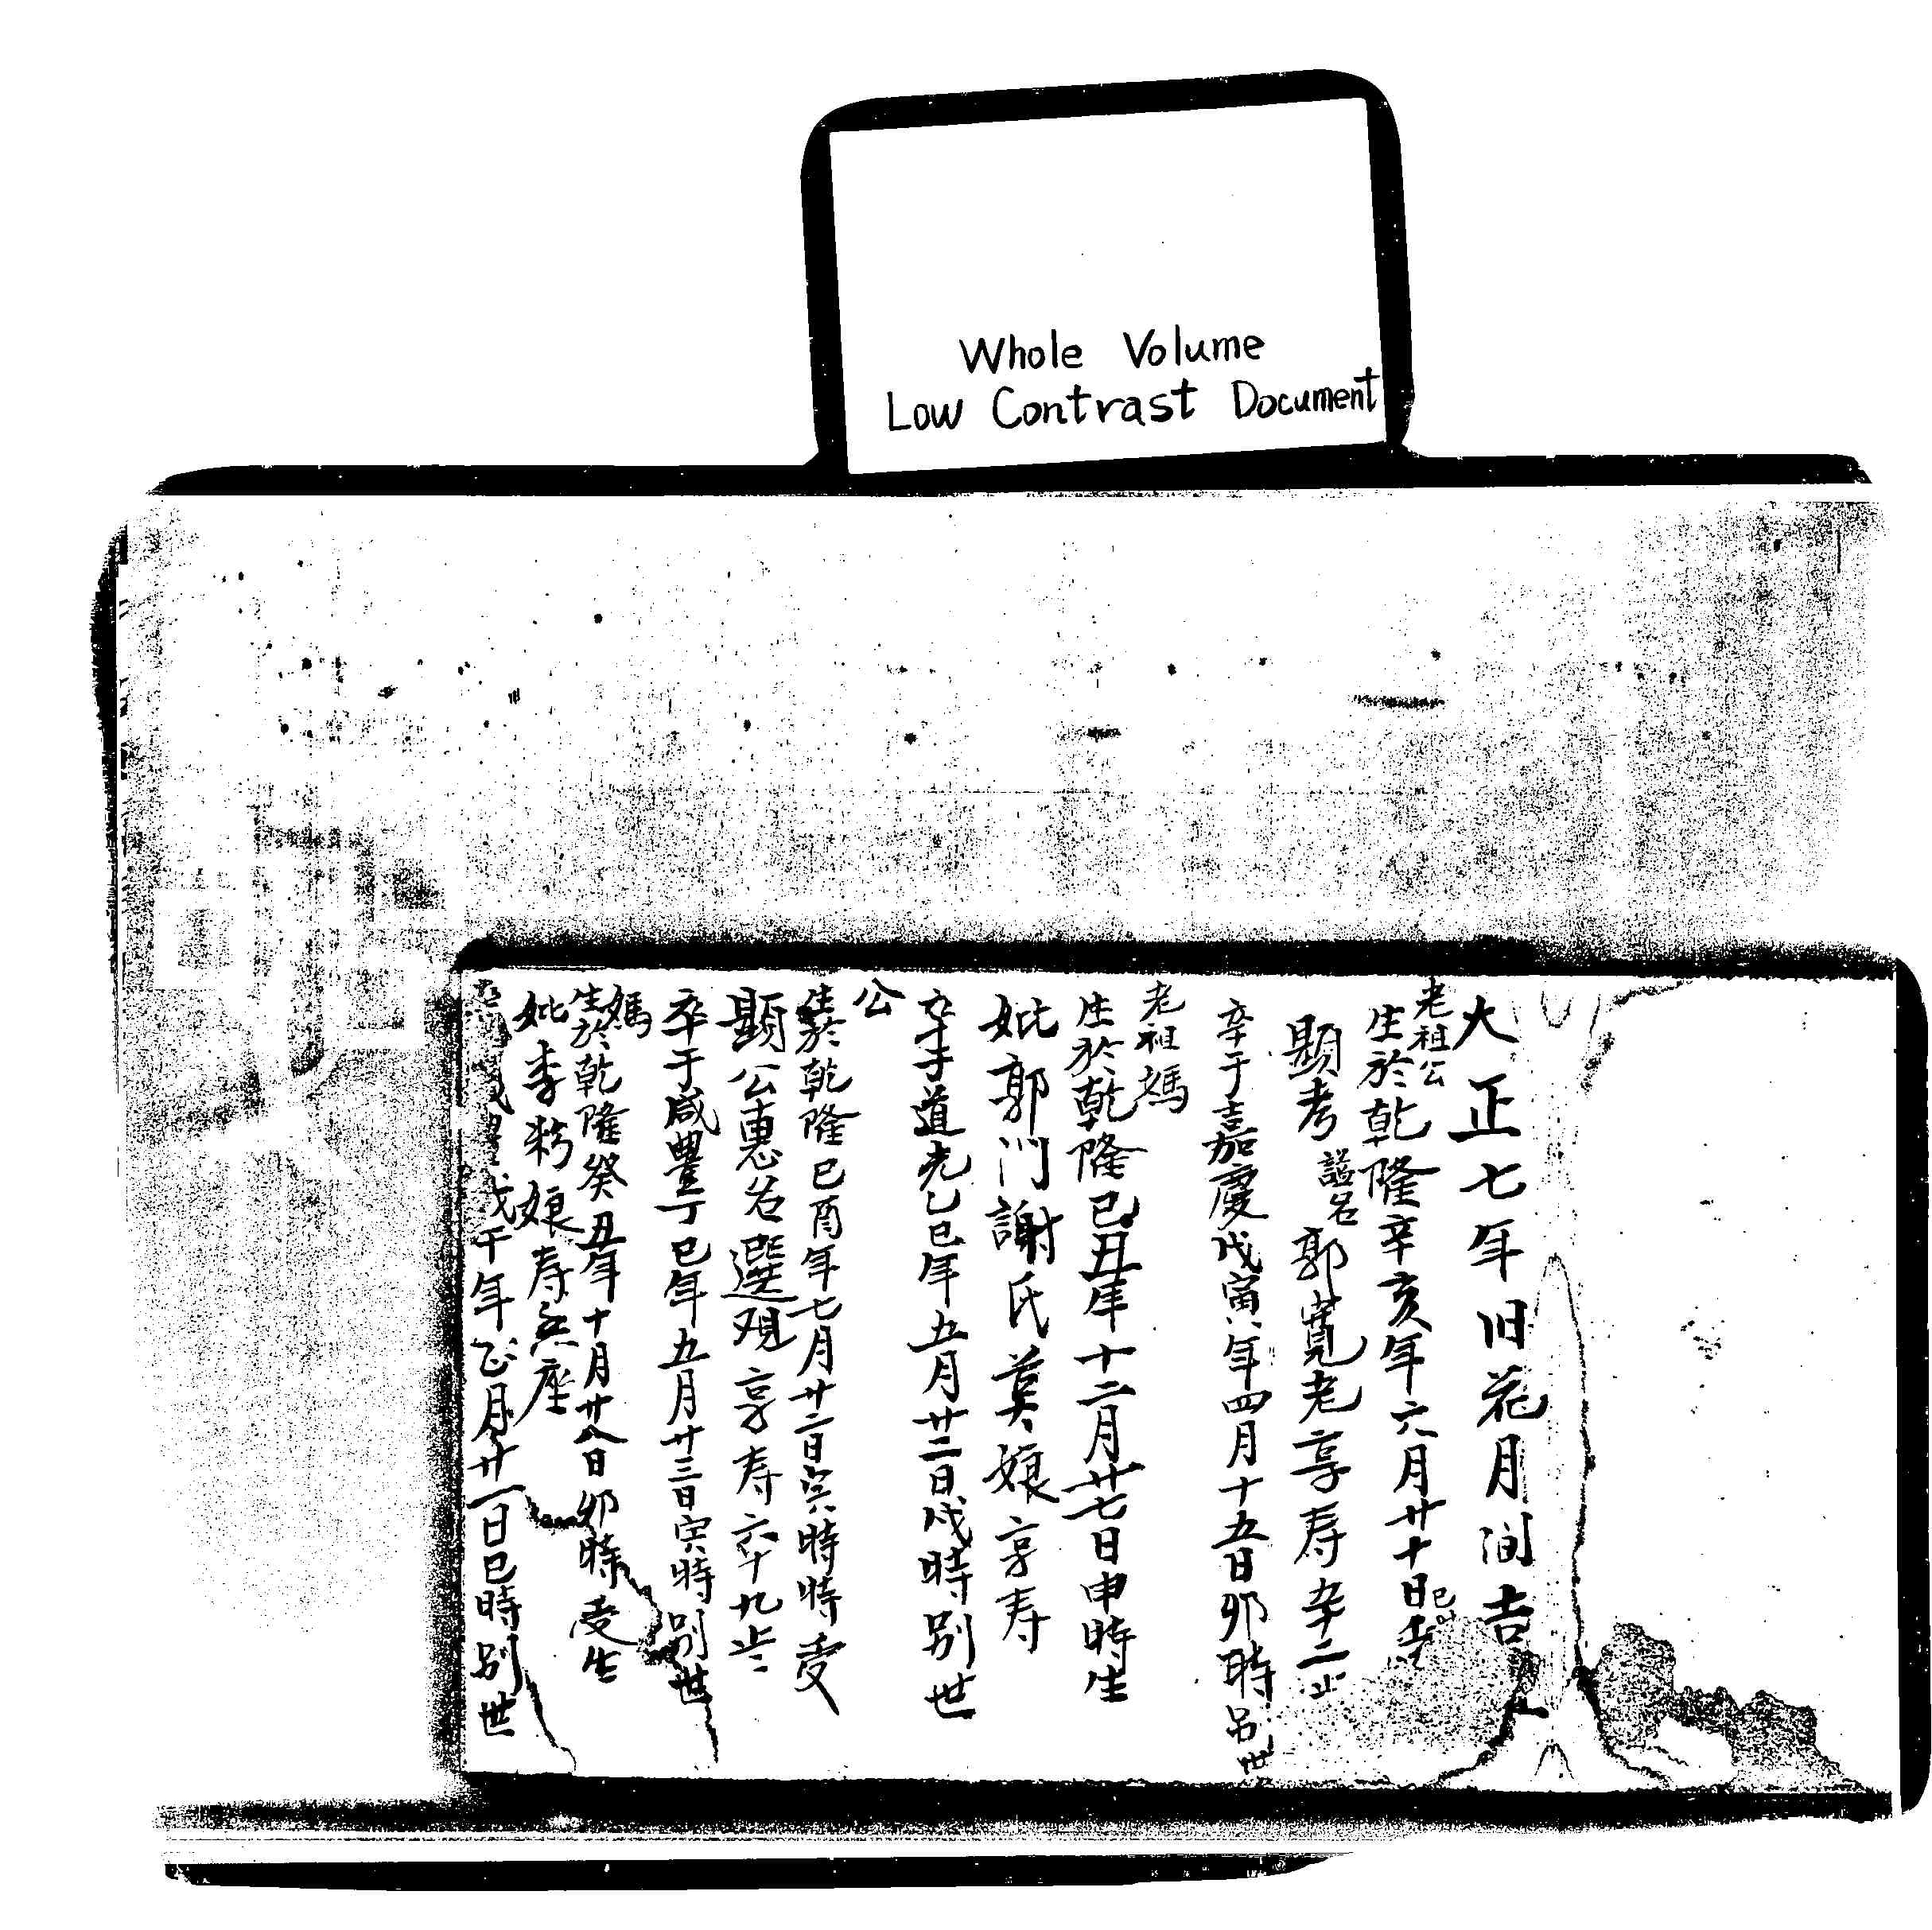 Whole Volume
Low Contrast Document
大正七年旧花月间吉
老祖公
生於乾隆辛亥年六月廿十日巳
顕考諡名郭寬老享寿卒二止
卒于嘉慶戊寅年四月十五日卯時别世
老祖媽
生於乾隆己丑年十二月廿七日申時生
妣郭門謝氏莫娘享寿
卒于道光乙巳年五月廿二日戌時别世
公
生於乾隆己酉年七月廿二日寅時時受
顕公惠名選观享寿六十九岁
卒于咸豊丁巳年五月廿三日寅時别世
媽
生於乾隆癸丑年十月廿八日卯時受生
妣李娘寿座
戊午年正月廿一日巳時别世